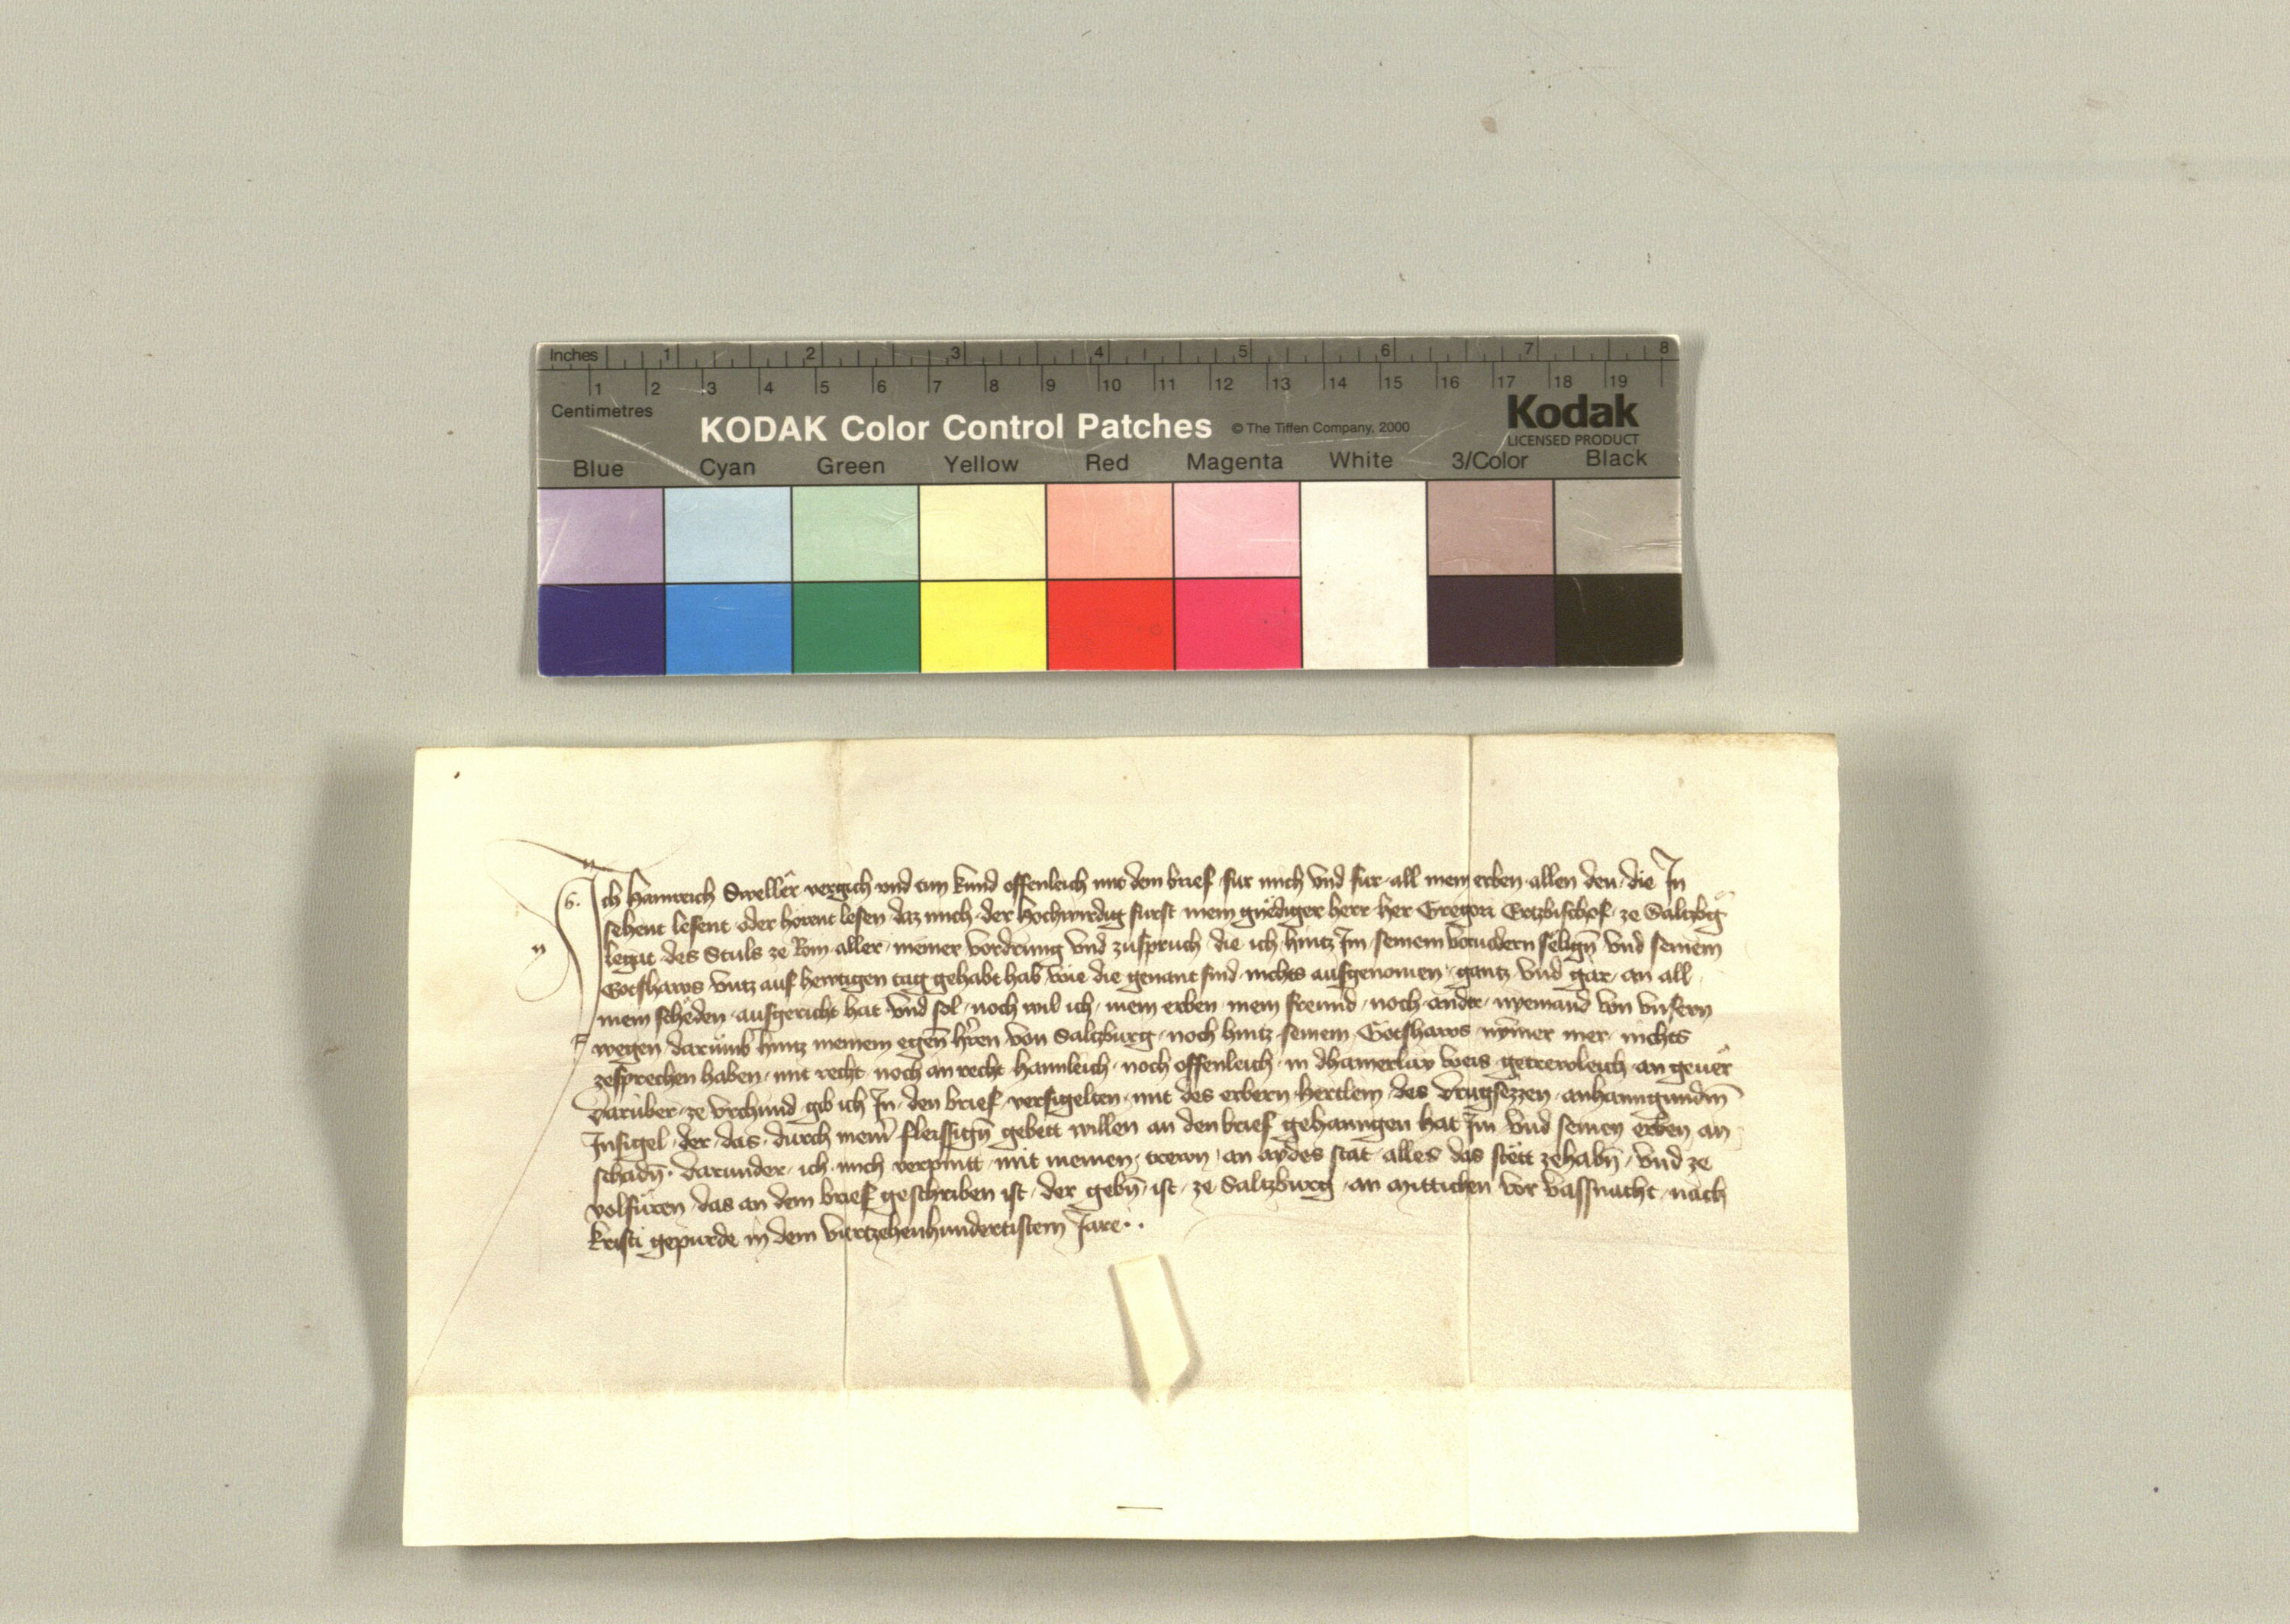 Inches 1 2 3 4 5 6 7 8
1 2 3 4 5 6 7 8 9 10 11 12 13 14 15 16 17 18 19
Centimetres
KODAK Color Control Patches © The Tiffen Company, 2000 Kodak
LICENSED PRODUCT
Blue Cyan Green Yellow Red Magenta White 3/Color Black
Ich Hainreich Sweller vergich vnd tun kund offenleich mit dem brief fur mich vnd fur all mein erben allen den die In
sehent lesent oder horent lesen daz mich der Hochwirdig furst mein gnëdiger herr her Gregori Ertzbischof ze Saltzbg
legat des Stuls ze Rom aller meiner vordrung vnd zuspruch die ich hintz Im seinem voruodern selign̄ vnd seinem
Gotshaws vntz auf hewtigen tag gehabt hab wie die genant sind nichts ausgenomen gantz vnd gar an all
mein schëden ausgericht hat vnd sol noch wil ich mein erben mein freund noch ander nyemand von vnsern
wegen darumb hintz meinem egen̄ hr̄en von Saltzburg noch hintz seinem Gotshaws nȳmer mer nichts
zesprechen haben mit recht noch an recht haimleich noch offenleich in dhainerlay weis getrewleich an geuer
Daruber ze vrchund gib ich In den brief versigelten mit des erbern Hertlein des Drugsëzzen anhanngundm̄
Insigel der das durch meiner fleissign̄ gebett willen an den brief gehanngen hat Im vnd seinen erben an
schadn̄. Darunder ich mich verpintt mit meinen trewn an aydes stat alles das stëtt zehabn̄ vnd ze
volfüren das an dem brief geschriben ist der gebn̄ ist ze Saltzburg an mittichen vor vassnacht nach
kristi gepurde in dem viertzehenhundertistem Jare..